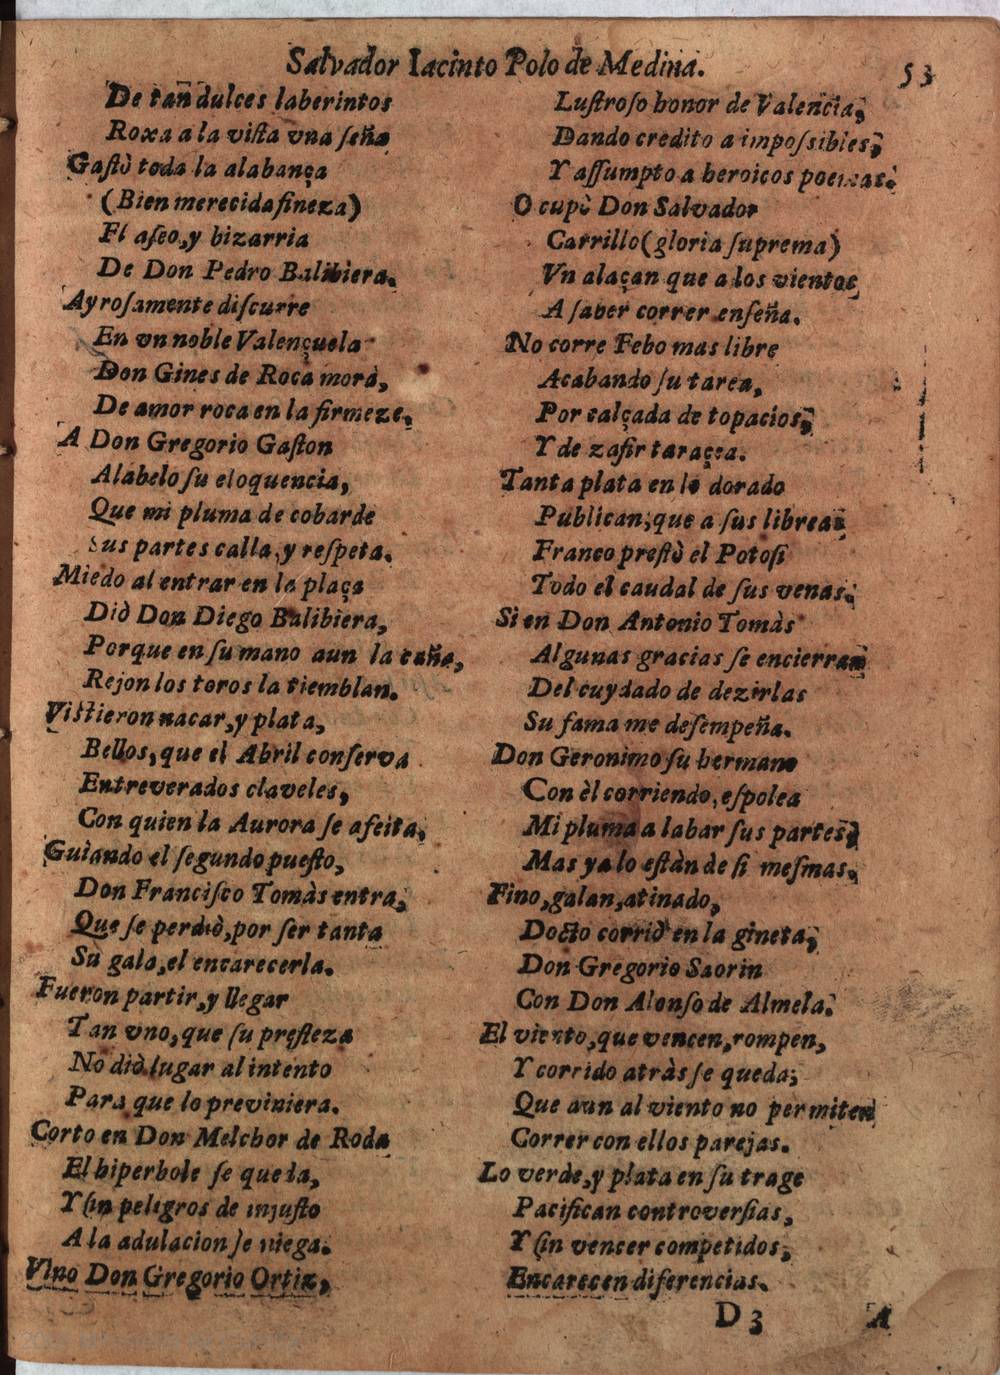 Salvador Iacinto Polo de Medina.
53
De tan dulces laberintos
Roxa a la vista vna seña
Gastò toda la alabança
(Bien merecida fineza)
El aseo, y bizarria
De Don Pedro Balibiera.
Ayrosamente discurre
En vn noble Valençuela
Don Gines de Roca morà,
De amor roca en la firmeze.
A Don Gregorio Gaston
Alabelo su eloquencia,
Que mi pluma de cobarde
Sus partes calla, y respeta.
Miedo al entrar en la plaça
Diò Don Diego Balibiera,
Porque en su mano aun la caña,
Rejon los toros la tiemblan.
Vistieron nacar, y plata,
Bellos, que el Abril conserva
Entreverados claveles,
Con quien la Aurora se afeita,
Guiando el segundo puesto,
Don Francisco Tomàs entra,
Que se perdiò, por ser tanta
Su gala, el encarecerla.
Fueron partir, y llegar
Tan vno, que su presteza
No diò lugar al intento
Para que lo previniera.
Corto en Don Melchor de Roda
El hiperbole se queda,
Y sin peligros de injusto
A la adulacion se niega.
Vino Don Gregorio Ortiz,
Lustroso honor de Valencia,
Dando credito a impossibles,
Y assumpto a heroicos poemas.
Ocupò Don Salvador
Carrillo (gloria suprema)
Vn alaçan que a los vientos
A saber correr enseña.
No corre Febo mas libre
Acabando su tarea,
Por calçada de topacios,
Y de zafir taraçea.
Tanta plata en lo dorado
Publican, que a sus libreas
Franco prestò el Potosi
Todo el caudal de sus venas.
Si en Don Antonio Tomàs
Algunas gracias se encierran
Del cuydado de dezirlas
Su fama me desempeña.
Don Geronimo su hermano
Con èl corriendo, espolea
Mi pluma a labar sus partes,
Mas ya lo estàn de si mesmas.
Fino, galan, atinado,
Docto corriò en la gineta,
Don Gregorio Saorin
Con Don Alonso de Almela.
El viento, que vencen, rompen,
Y corrido atràs se queda;
Que aun al viento no permiten
Correr con ellos parejas.
Lo verde, y plata en su trage
Pacifican controversias,
Y sin vencer competidos,
Encarecen diferencias.
D 3
A